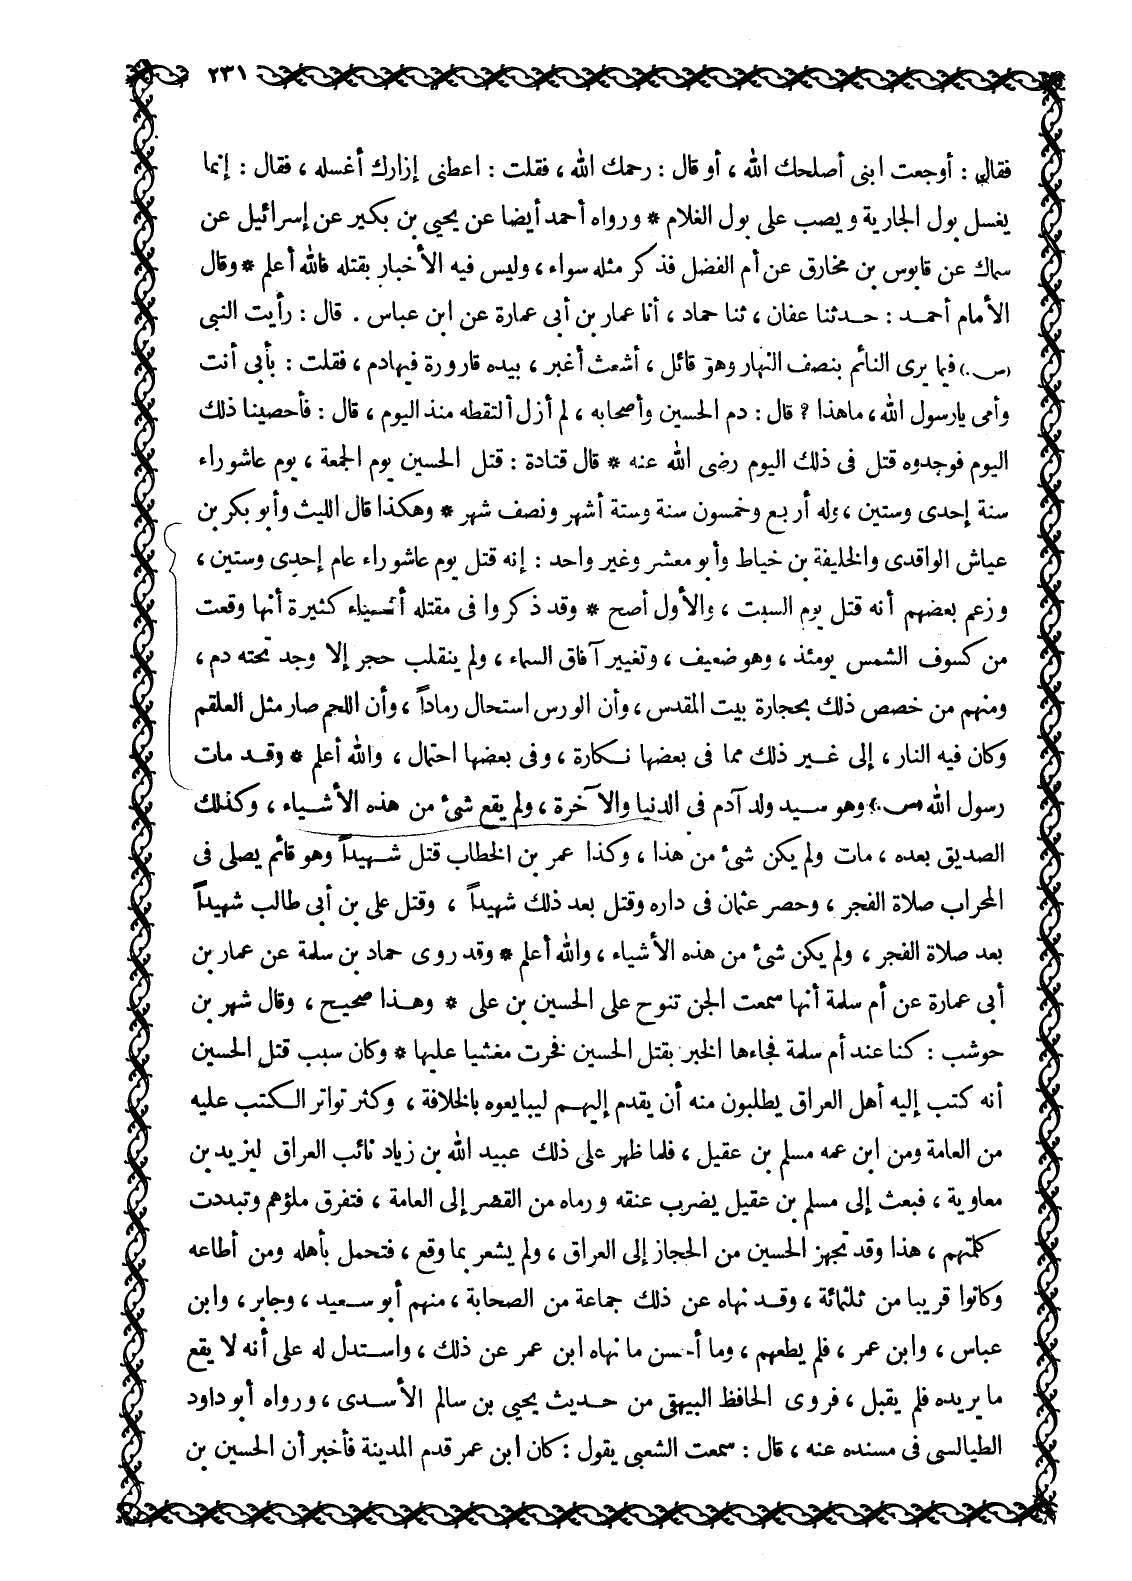 ٢٣١
فقال : أوجعت ابنى أصلحك الله ، أو قال : رحمك الله ، فقلت : اعطنى إزارك أغسله ، فقال : إنما
يغسل بول الجارية ويصب على بول الغلام * ورواه أحمد أيضا عن يحيى بن بكير عن إسرائيل عن
سماك عن قابوس بن مخارق عن أم الفضل فذكر مثله سواء ، وليس فيه الأخبار بقتله فالله أعلم * وقال
الأمام أحمد : حدثنا عفان ، ثنا حماد ، أنا عمار بن أبى عمارة عن ابن عباس . قال : رأيت النبى
(ص.) فيما يرى النائم بنصف النهار وهو قائل ، أشعث أغبر ، بيده قارورة فيها دم ، فقلت : بأبى أنت
وأمى يا رسول الله ، ما هذا ? قال : دم الحسين وأصحابه ، لم أزل ألتقطه منذ اليوم ، قال : فأحصينا ذلك
اليوم فوجدوه قتل فى ذلك اليوم رضى الله عنه * قال قتادة : قتل الحسين يوم الجمعة ، يوم عاشوراء
سنة إحدى وستين ، وله أربع وخمسون سنة وستة أشهر ونصف شهر * وهكذا قال الليث وأبو بكر بن
عياش الواقدى والخليفة بن خياط وأبو معشر وغير واحد : إنه قتل يوم عاشوراء عام إحدى وستين ،
وزعم بعضهم أنه قتل يوم السبت ، والأول أصح * وقد ذكروا فى مقتله أشياء كثيرة أنها وقعت
من كسوف الشمس يومئذ ، وهو ضعيف ، وتغيير آفاق السماء ، ولم ينقلب حجر إلا وجد تحته دم ،
ومنهم من خصص ذلك بحجارة بيت المقدس ، وأن الورس استحال رماداً ، وأن اللحم صار مثل العلقم
وكان فيه النار ، إلى غير ذلك مما فى بعضها نكارة ، وفى بعضها احتمال ، والله أعلم * وقد مات
رسول الله (ص.) وهو سيد ولد آدم فى الدنيا والآخرة ، ولم يقع شئ من هذه الأشياء ، وكذلك
الصديق بعده ، مات ولم يكن شئ من هذا ، وكذا عمر بن الخطاب قتل شهيداً وهو قائم يصلى فى
المحراب صلاة الفجر ، وحصر عثمان فى داره وقتل بعد ذلك شهيداً ، وقتل على بن أبى طالب شهيداً
بعد صلاة الفجر ، ولم يكن شئ من هذه الأشياء ، والله أعلم * وقد روى حماد بن سلمة عن عمار بن
أبى عمارة عن أم سلمة أنها سمعت الجن تنوح على الحسين بن على * وهذا صحيح ، وقال شهر بن
حوشب : كنا عند أم سلمة فجاءها الخبر بقتل الحسين فخرت مغشيا عليها * وكان سبب قتل الحسين
أنه كتب إليه أهل العراق يطلبون منه أن يقدم إليهم ليبايعوه بالخلافة ، وكثر تواتر الكتب عليه
من العامة ومن ابن عمه مسلم بن عقيل ، فلما ظهر على ذلك عبيد الله بن زياد نائب العراق ليزيد بن
معاوية ، فبعث إلى مسلم بن عقيل يضرب عنقه ورماه من القصر إلى العامة ، فتفرق ملؤهم وتبددت
كلمتهم ، هذا وقد تجهز الحسين من الحجاز إلى العراق ، ولم يشعر بما وقع ، فتحمل بأهله ومن أطاعه
وكانوا قريبا من ثلثمائة ، وقد نهاه عن ذلك جماعة من الصحابة ، منهم أبو سعيد ، وجابر ، وابن
عباس ، وابن عمر ، فلم يطعهم ، وما أحسن ما نهاه ابن عمر عن ذلك ، واستدل له على أنه لا يقع
ما يريده فلم يقبل ، فروى الحافظ البيهقى من حديث يحيى بن سالم الأسدى ، ورواه أبو داود
الطيالسى فى مسنده عنه ، قال : سمعت الشعبى يقول : كان ابن عمر قدم المدينة فأخبر أن الحسين بن